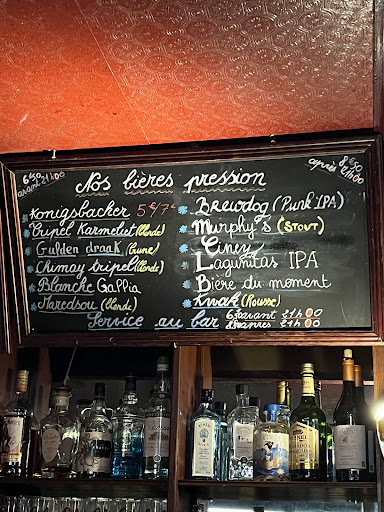 6€50 avant 21h00
Nos bières pression
après 21h00 8€50
Konigsbacker 5€/7€
Tripel Karmeliet (blonde)
Gulden draak (brune)
Chimay tripel (blonde)
Blanche Gallia
Maredsou (blonde)
Brewdog (Punk IPA)
Murphy's (STOUT)
Ciney
Lagunitas IPA
Bière du moment
Kwak (Rousse)
Service au bar 6€ avant 21h00
8€ après 21h00